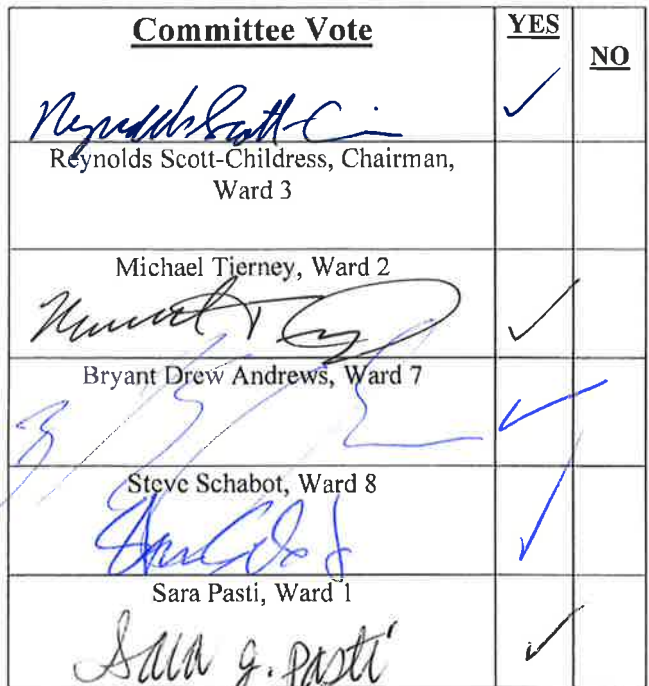 Committee Vote YES NO
Reynolds Scott-C
✓
Reynolds Scott-Childress, Chairman,
Ward 3
Michael Tierney, Ward 2
✓
Bryant Drew Andrews, Ward 7
✓
Steve Schabot, Ward 8
✓
Sara Pasti, Ward 1
Sara g. pasti
✓